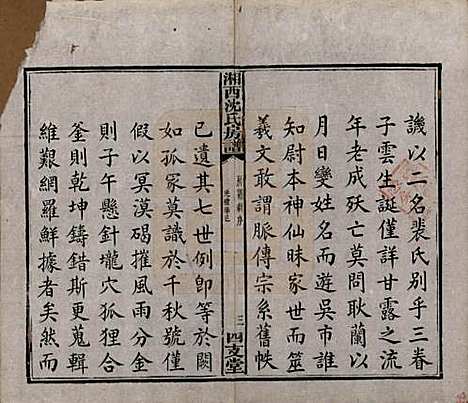 譏以二名裴氏別乎三眷
子雲生誕僅詳甘露之流
年老成殀亡莫問耿蘭以
月日變姓名而遊吳市誰
知尉本神仙昧家世而筮
羲文敢謂脈傳宗系舊帙
湘西沈氏房譜
三
四支堂
已遺其七世例卽等於闕
如孤冢莫識於千秋號僅
假以冥漠碣摧風雨分金
則子午懸針壠穴狐狸合
釜則乾坤鑄錯斯更蒐輯
維艱網羅鮮據者矣然而